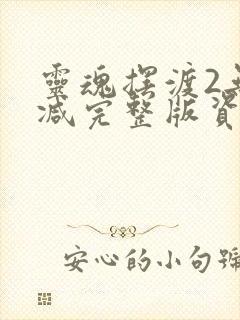 靈魂摆渡2
减完整版資
安心的小句號